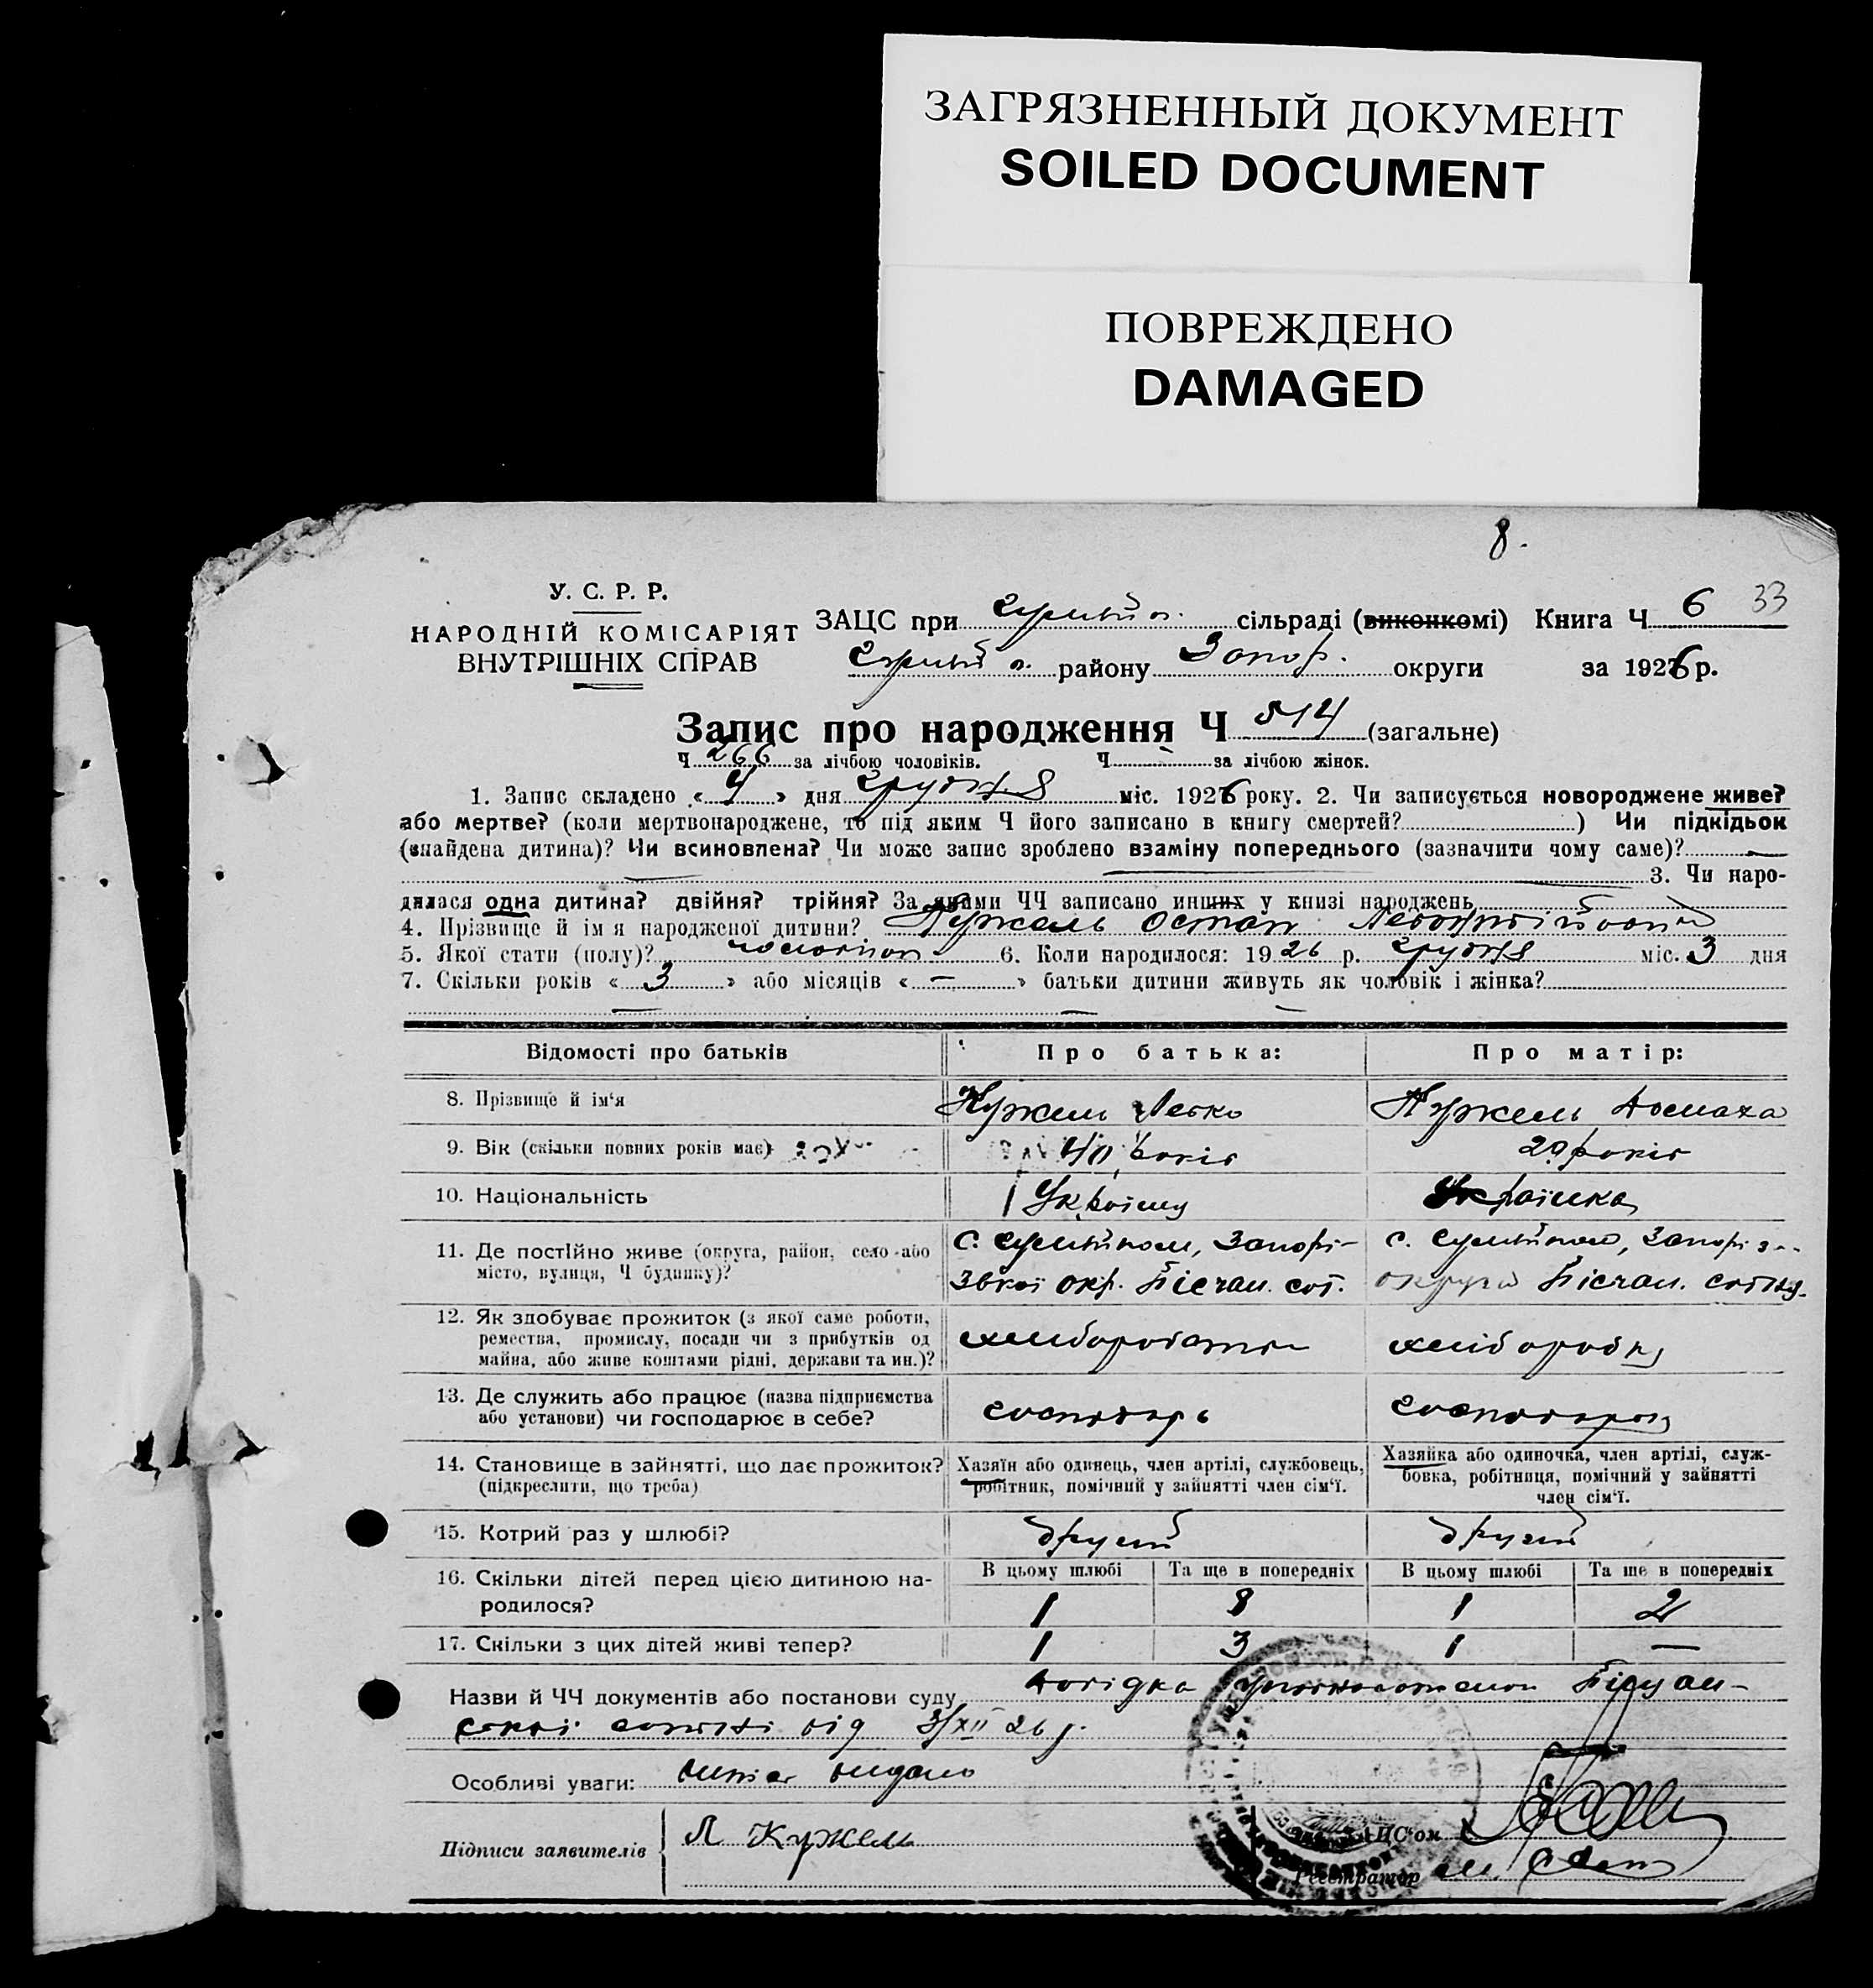 ЗАГРЯЗНЕННЫЙ ДОКУМЕНТ
SOILED DOCUMENT
ПОВРЕЖДЕНО
DAMAGED
8.
У. С. Р. Р.
НАРОДНІЙ КОМІСАРІЯТ
ВНУТРІШНІХ СПРАВ
ЗАЦС при сільраді (виконкомі) Книга Ч 6 33
району Запор. округи за 1926 р.
Запис про народження Ч 514 (загальне)
Ч 266 за лічбою чоловіків. Ч - за лічбою жінок.
1. Запис складено «4» дня грудня 8 міс. 1926 року. 2. Чи записується новороджене живе?
або мертве? (коли мертвонароджене, то під яким Ч його записано в книгу смертей? ) Чи підкідьок
(знайдена дитина)? Чи всиновлена? Чи може запис зроблено взаміну попереднього (зазначити чому саме)? —
3. Чи наро-
дилася одна дитина? двійня? трійня? За якими ЧЧ записано инших у книзі народжень
4. Прізвище й ім я народженої дитини? Кужель Остап
5. Якої стати (полу)? 6. Коли народилося: 1926 р. грудня міс. 3 дня
7. Скільки років «3» або місяців «—» батьки дитини живуть як чоловік і жінка?
Відомості про батьків Про батька: Про матір:
8. Прізвище й ім‘я Кужель Левко Кужель
9. Вік (скільки повних років має) 40 років 29 років
10. Національність Українка
11. Де постійно живе (округа, район, село або
місто, вулиця, Ч будинку)?
с. Гуляйполе, Запорі-
зької окр. Піщан. сот.
с. Гуляйполе,
округи Піщан. сотня
12. Як здобуває прожиток (з якої саме роботи,
ремества, промислу, посади чи з прибутків од
майна, або живе коштами рідні, держави та ин.)?
13. Де служить або працює (назва підприємства
або установи) чи господарює в себе?
господарь
14. Становище в зайнятті, що дає прожиток?
(підкреслити, що треба)
Хазяїн або одинець, член артілі, службовець,
робітник, помічний у зайнятті член сім‘ї.
Хазяйка або одиночка, член артілі, служ-
бовка, робітниця, помічний у зайнятті
член сім‘ї.
15. Котрий раз у шлюбі? другий другий
16. Скільки дітей перед цією дитиною на-
родилося?
В цьому шлюбі Та ще в попередніх В цьому шлюбі Та ще в попередніх
1 8 1 2
17. Скільки з цих дітей живі тепер? 1 3 1 —
Назви й ЧЧ документів або постанови суду Довідка Піщан-
ської сотні від 3/XII 26 р.
Особливі уваги: видано
Підписи заявителів Л Кужель
ЗАЦС‘ом
Реєстратор